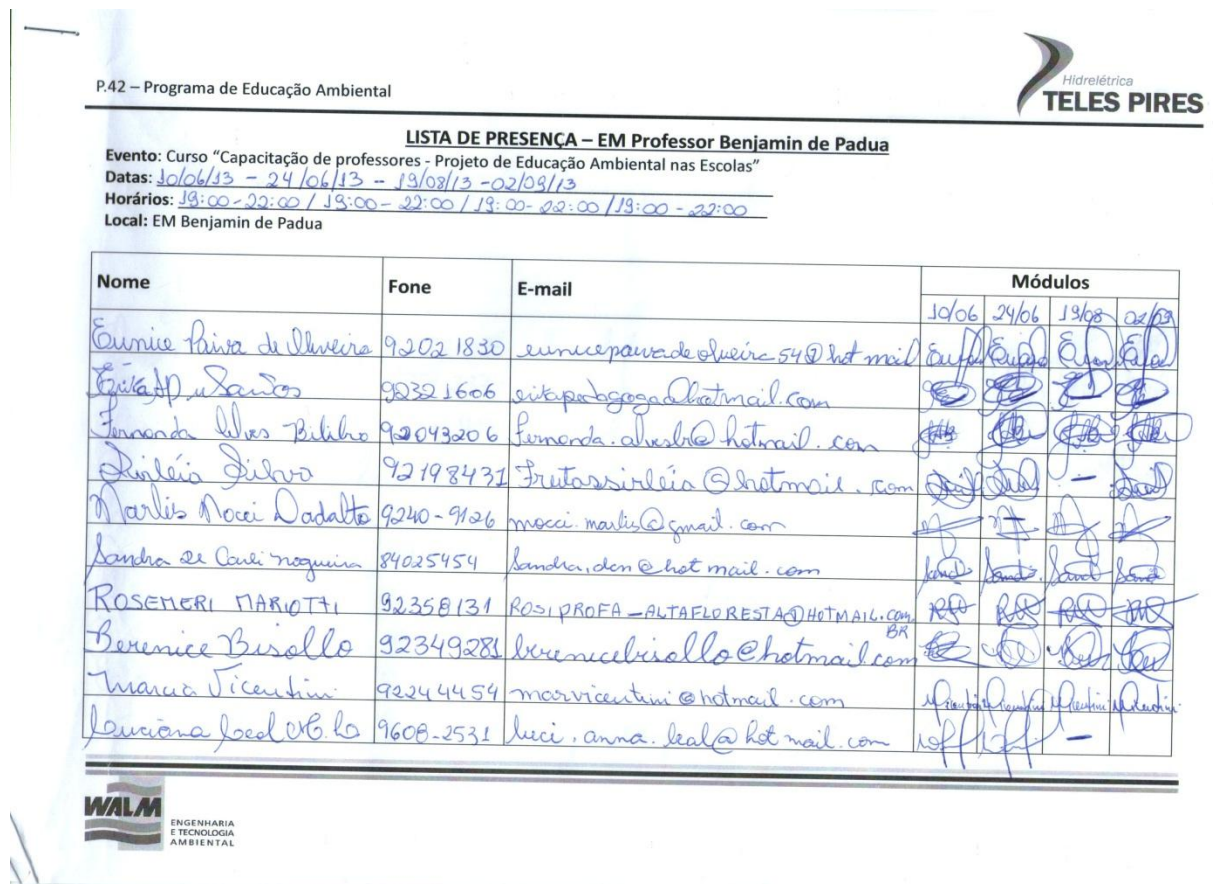 P.42 – Programa de Educação Ambiental
Hidrelétrica
TELES PIRES
LISTA DE PRESENÇA – EM Professor Benjamin de Padua
Evento: Curso “Capacitação de professores - Projeto de Educação Ambiental nas Escolas”
Datas: 10/06/13 - 24/06/13 - 19/08/13 - 02/09/13
Horários: 19:00-22:00 / 19:00-22:00 / 19:00-22:00 / 19:00-22:00
Local: EM Benjamin de Padua
Nome Fone E-mail Módulos
10/06 24/06 19/08 02/09
Eunice Paiva de Oliveira 92021830 eunicepaivadeoliveira54@hotmail
Santos 92321606 @hotmail.com
Fernanda Alves 92043206 fernanda.alvesbr@hotmail.com
Sirléia Silva 92198431 Freitassirléia@hotmail.com -
Marlis Mocci Dadalto 9240-9126 mocci.marlis@gmail.com
Sandra de Carli Nogueira 84025454 Sandra.den@hotmail.com
ROSEMERI MARIOTTI 92358131 ROSIPROFA_ALTAFLORESTA@HOTMAIL.COM.
BR
Berenice Bisollo 92349281 berenicebisollo@hotmail.com
Marcia Vicentini 92244454 marvicentini@hotmail.com
Luciana Leal 9608-2531 luci.anna.leal@hotmail.com -
WALM
ENGENHARIA
E TECNOLOGIA
AMBIENTAL